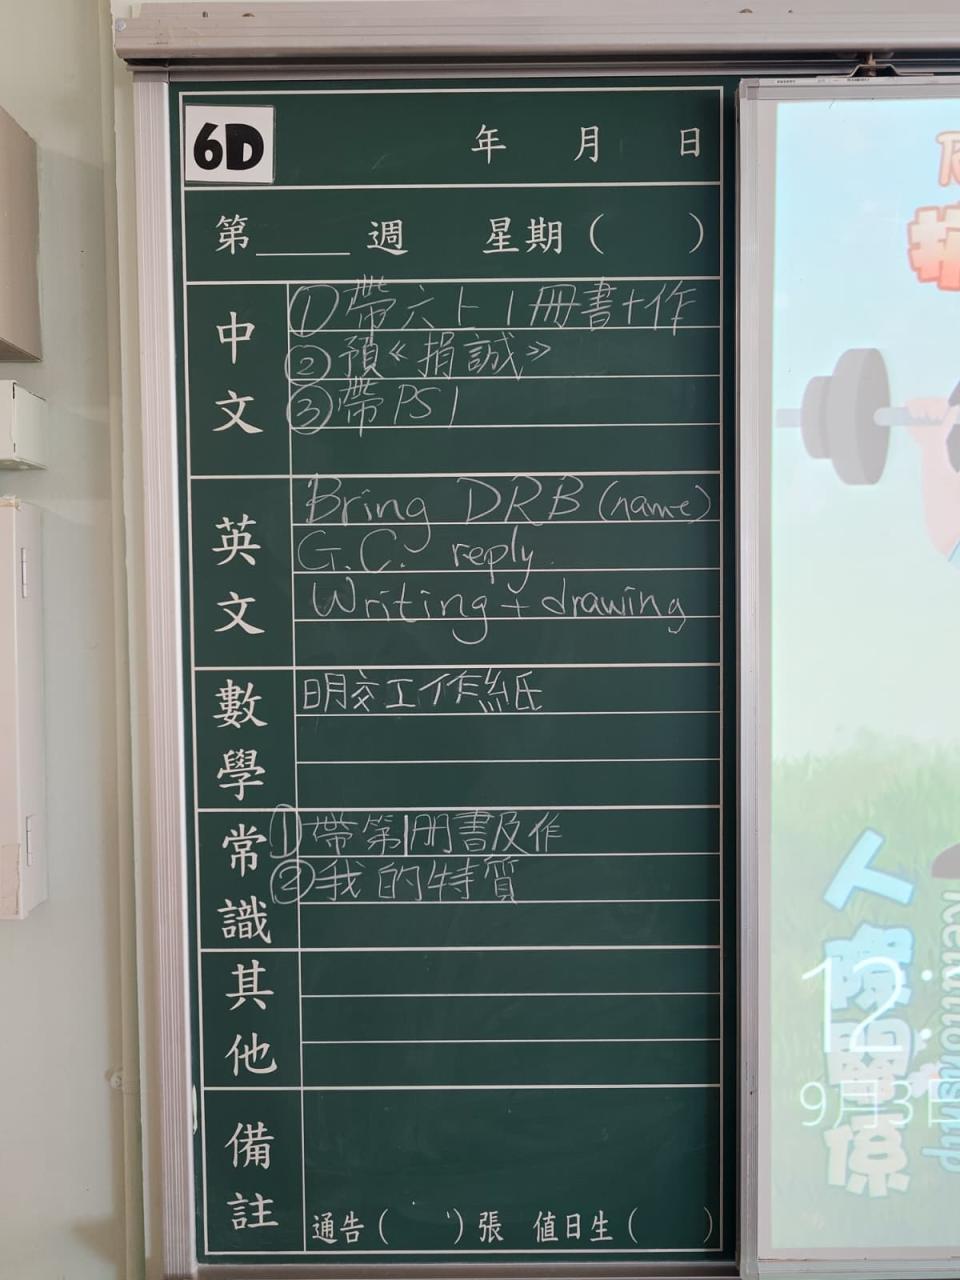 6D 年 月 日
第____週 星期( )
中文
①帶六上1冊書+作
②預《捐誠》
③帶PS1
英文
Bring DRB (name)
G.C. reply.
Writing + drawing
數學
明交工作紙
常識
①帶第1冊書及作
②我的特質
其他
備註
通告( )張 值日生( )
人際關係
Relationship
12:
9月3日